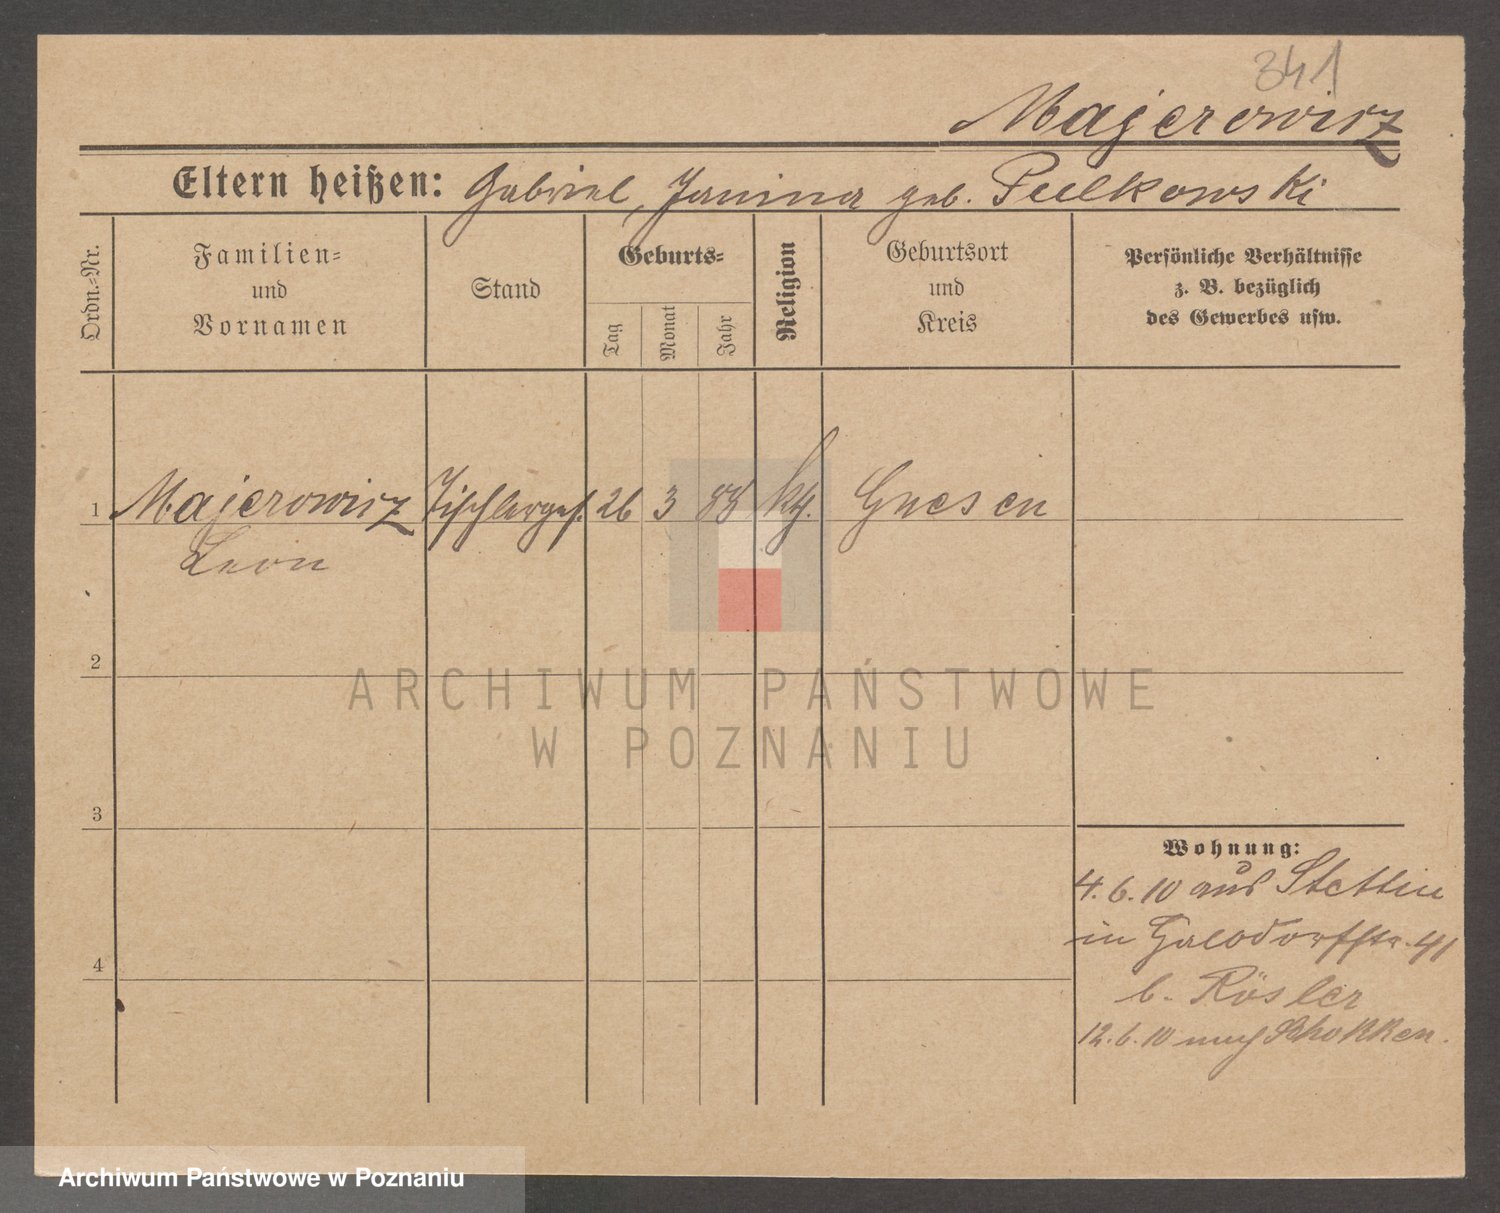 341
Majerowicz
Eltern heißen: Gabriel, Janina geb. Pulkowski
Ordn.-Nr.
Familien-
und
Vornamen
Stand
Geburts-
Tag
Monat
Jahr
Religion
Geburtsort
und
Kreis
Persönliche Verhältnisse
z. B. bezüglich
des Gewerbes usw.
1 Majerowicz Tischlerges. 26 3 88 kth. Gnesen
Leon
2
3
4
Wohnung:
4.6.10 aus Stettin
in 41
b. Rösler
12.6.10 nach Schokken.
ARCHIWUM PAŃSTWOWE
W POZNANIU
Archiwum Państwowe w Poznaniu